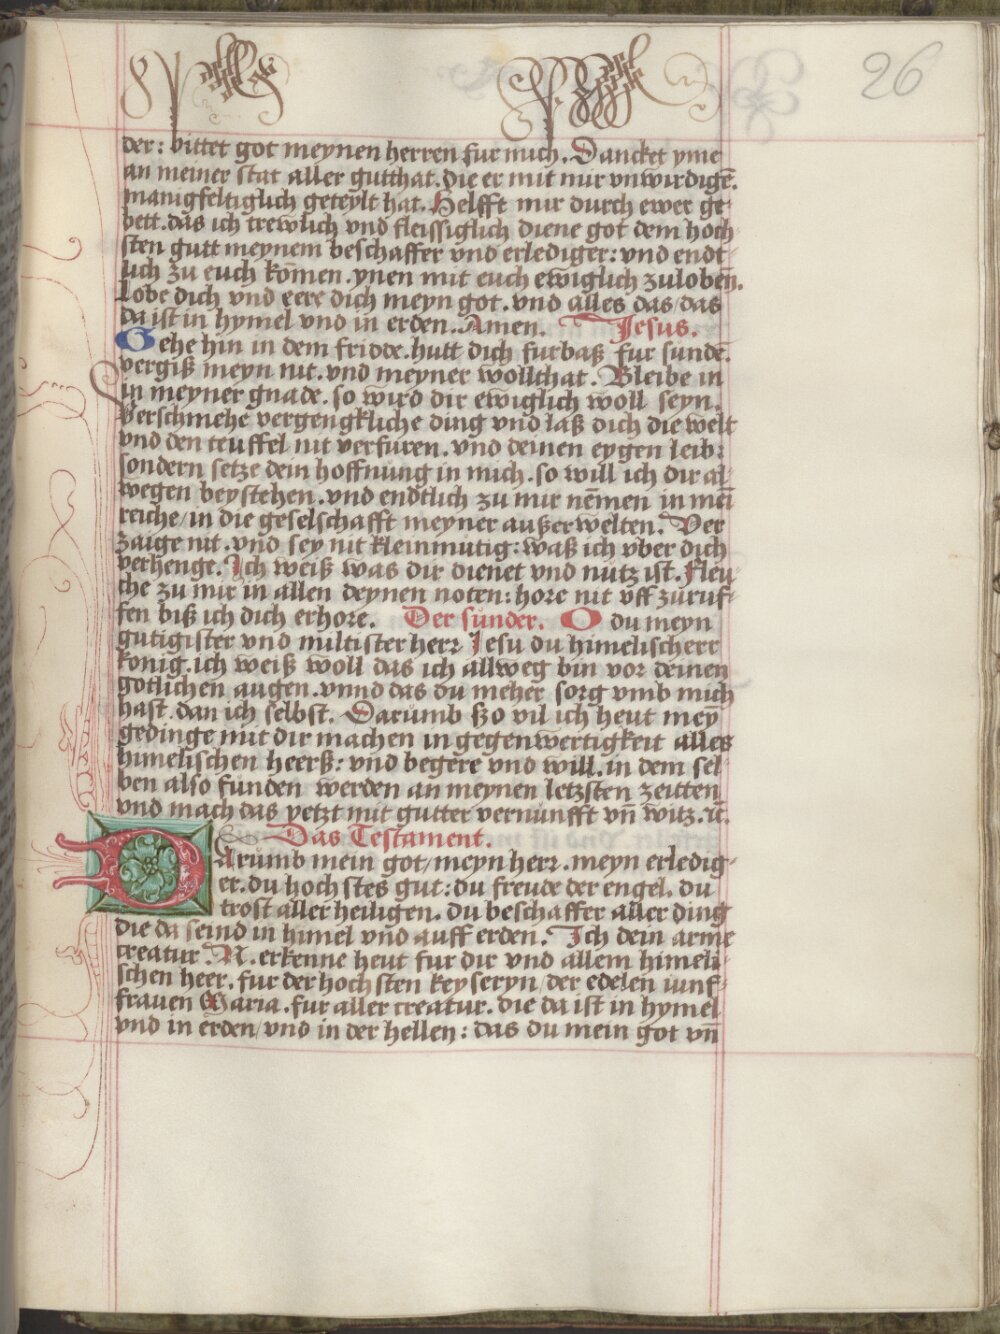 26
der: bittet got meynen herren fur mich. Dancket yme
an meiner stat aller gutthat. die er mit mir vnwirdigē.
manigfeltiglich geteylt hat. Helfft mir durch ewer ge-
bett. das ich trewlich vnd fleissiglich diene got dem hoch-
sten gutt meynem beschaffer vnd erlediger: vnd endt-
lich zu euch komen. ynen mit euch ewiglich zuloben.
Lobe dich vnd eere dich meyn got. vnd alles das/das
da ist in hymel vnd in erden. Amen. Jesus.
Gehe hin in dem fridde. hutt dich furbaß fur sunde.
vergiß meyn nit. vnd meyner wollthat. Bleibe in
in meyner gnade. so wird dir ewiglich woll seyn.
Verschmehe vergengkliche ding vnd laß dich die welt
vnd den teuffel nit verfuren. vnd deinen eygen leib:
sondern setze dein hoffnung in mich. so will ich dir al-
wegen beystehen. vnd endtlich zu mir nemen in mei
reiche/in die geselschafft meyner außerwelten. Ver
zaige nit. vnd sey nit kleinmutig: waß ich vber dich
verhenge. Ich weiß was dir dienet vnd nutz ist. Fleu-
che zu mir in allen deynen noten: hore nit vff zuruf-
fen biß ich dich erhore. Der sunder. O du meyn
gutigister vnd miltister herr Jesu du himelischerr
konig. ich weiß woll das ich allweg bin vor deinen
gotlichen augen. vnnd das du meher sorg vmb mich
hast. dan ich selbst. Darumb ßo vil ich heut mey
gedinge mit dir machen in gegenwertigkeit alles
himelischen heerß: vnd begere vnd will. in dem sel-
ben also funden werden an meynen letzsten zeitten
vnd mach das yetzt mit gutter vernunfft vn̄ witz. ꝛc.
Das Testament.
Darumb mein got/meyn herr. meyn erledig-
er. du hochstes gut: du freude der engel. du
trost aller heiligen. du beschaffer aller ding
die da seind in himel vnd auff erden. Ich dein arme
creatur. N. erkenne heut fur dir vnd allem himeli-
schen heer. fur der hochsten keyseryn/der edelen iunf-
frauen Maria. fur aller creatur. die da ist in hymel
vnd in erden/vnd in der hellen: das du mein got vn̄